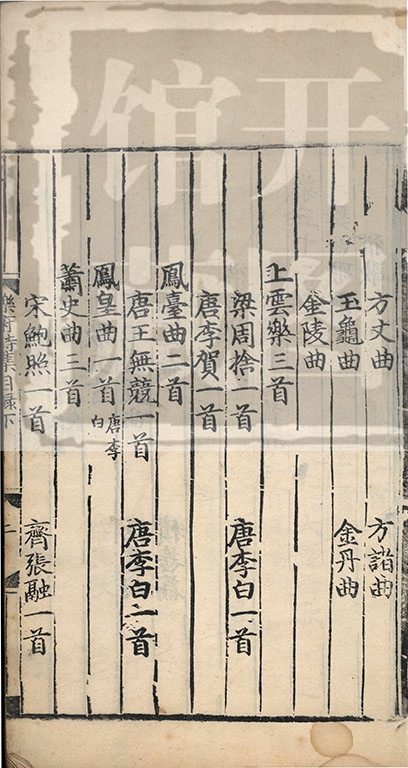 方丈曲 方諸曲
玉龜曲 金丹曲
金陵曲
上雲樂三首
梁周捨一首 唐李白一首
唐李賀一首
鳳臺曲二首
唐王無競一首 唐李白一首
鳳皇曲一首 唐李白
蕭史曲三首
宋鮑照一首 齊張融一首
樂府詩集目錄下